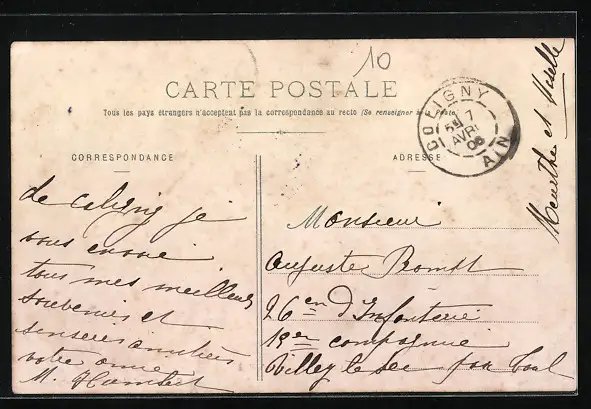 10
CARTE POSTALE
Tous les pays étrangers n'acceptent pas la correspondance au recto (Se renseigner à la Poste)
COLIGNY
7
AVRIL
06
AIN
CORRESPONDANCE
ADRESSE
de coligny je
vous envoie
tous mes meilleurs
souvenirs et
sincères amitiés
votre amie
M. Hambert
Monsieur
Auguste
26en d'Infanterie
13er compagnie
Villey le Sec par Toul
Meurthe et Moselle